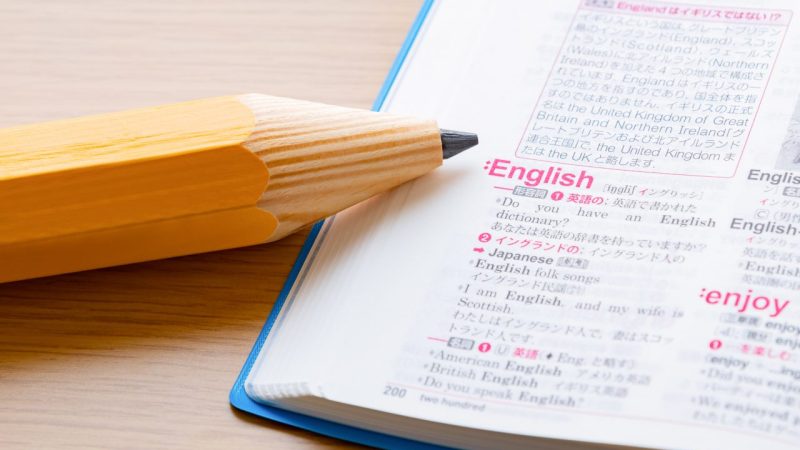 Englandはイギリスではない!?
イギリスという国は、グレートブリテン
島のイングランド(England)、スコッ
トランド(Scotland)、ウェールズ
(Wales)に北アイルランド(Northern
Ireland)を加えた4つの地域で構成さ
れています。Englandはイギリスの一
つの地方を指すのであり、国全体を指
すのではありません。イギリスの正式
名は the United Kingdom of Great
Britain and Northern Ireland「グ
レートブリテンおよび北アイルランド
連合王国」で、the United Kingdom ま
たは the UK と略します。
English [íŋgliʃ イングリッシ]
形容詞 ❶ 英語の;英語で書かれた
Do you have an English
dictionary?
あなたは英語の辞書を持っていますか?
❷ イングランドの;イングランド人の
➡ Japanese
English folk songs
イングランド民謡
I am English, and my wife is
Scottish.
わたしはイングランド人で、妻はスコッ
トランド人です。
名詞 ❶ U 英語(♦ Eng. と略す)
American English アメリカ英語
British English イギリス英語
Do you speak English?
200 two hundred
English
イングリッシ
English-
enjoy
enjoy
❶ …を楽しむ
enjoy
Did you
We enjoyed